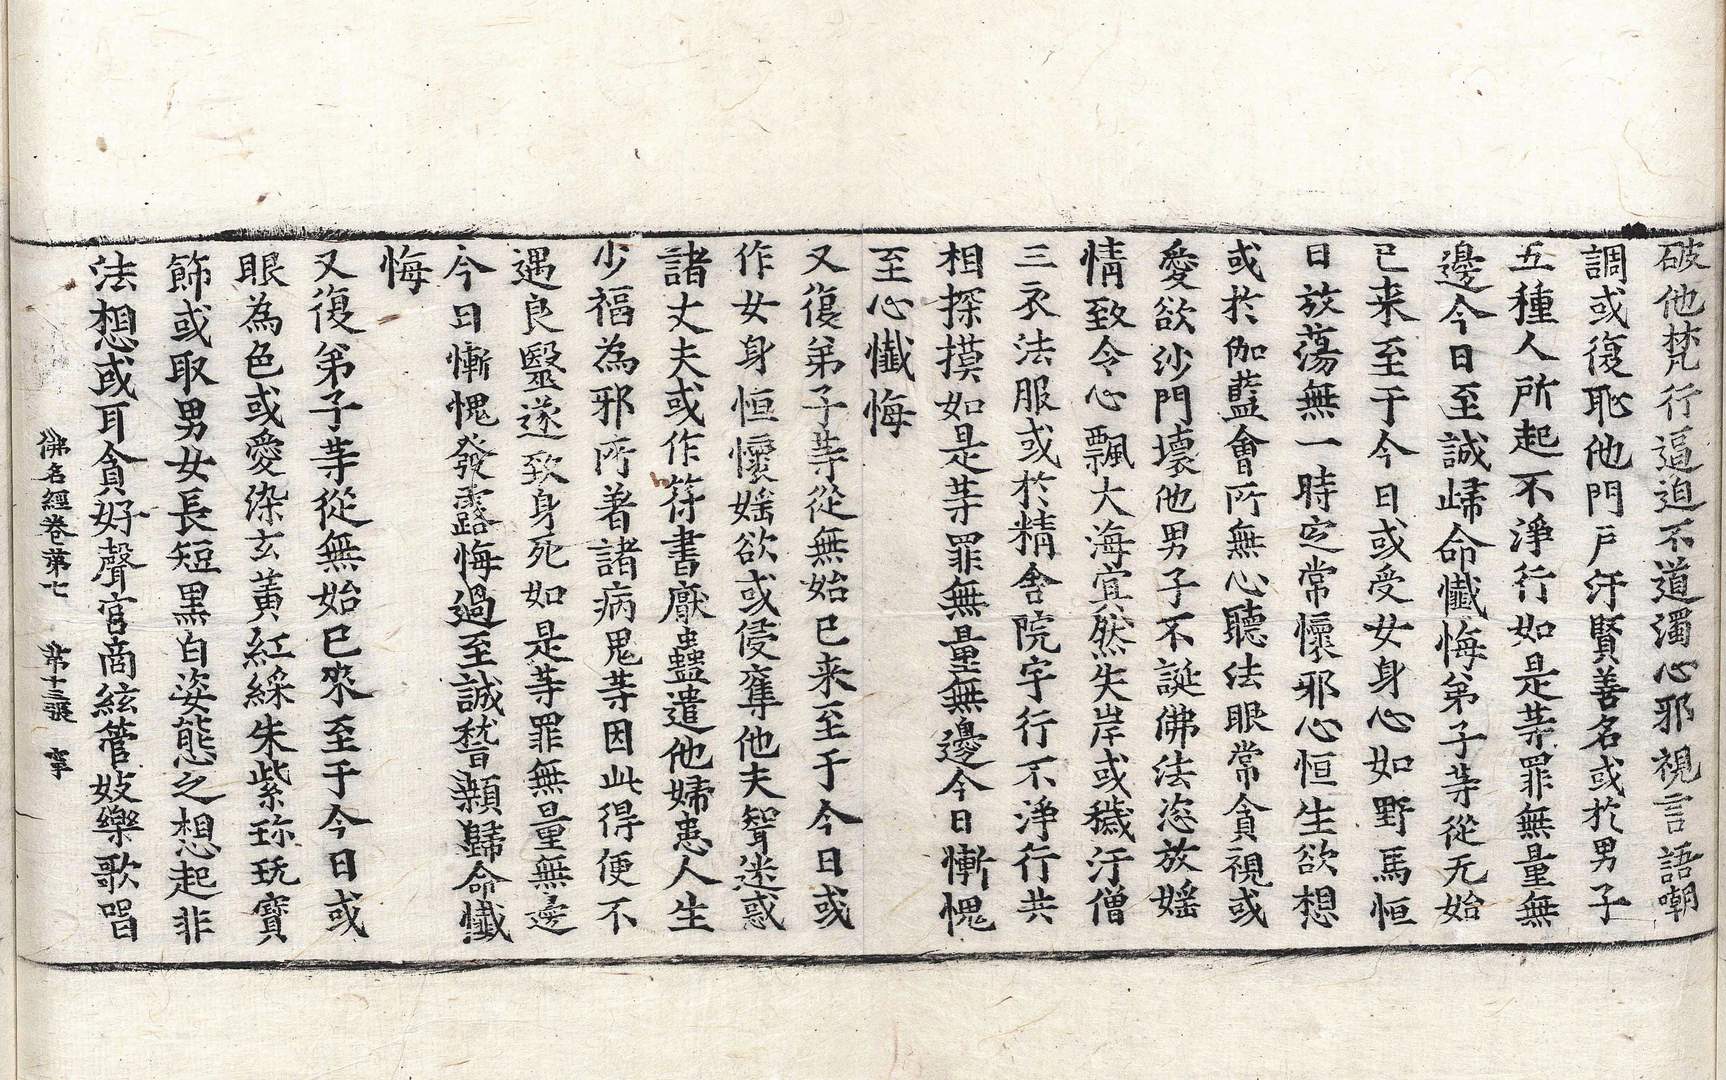 破他梵行逼迫不道濁心邪視言語嘲
調或復恥他門戶汙賢善名或於男子
五種人所起不淨行如是等罪無量無
邊今日至誠歸命懺悔弟子等從无始
已来至于今日或受女身心如野馬恒
日放蕩無一時定常懷邪心恒生欲想
或於伽藍會所無心聽法眼常貪視或
愛欲沙門壞他男子不誕佛法恣放婬
情致令心飄大海宜然失岸或穢汙僧
三衣法服或於精舍院宇行不淨行共
相探摸如是等罪無量無邊今日慚愧
至心懺悔
又復弟子等從無始已来至于今日或
作女身恒懷婬欲或侵奪他夫智迷惑
諸丈夫或作符書厭蠱遣他婦患人生
少福為邪所著諸病鬼等因此得便不
遇良毉遂致身死如是等罪無量無邊
今日慚愧發露悔過至誠嵆顙歸命懺
悔
又復弟子等從無始已來至于今日或
眼為色或愛染玄黃紅綵朱紫珎玩寶
飾或取男女長短黑白姿態之想起非
法想或耳貪好聲宮商絃管妓樂歌唱
佛名經卷第七 第十三張 寧